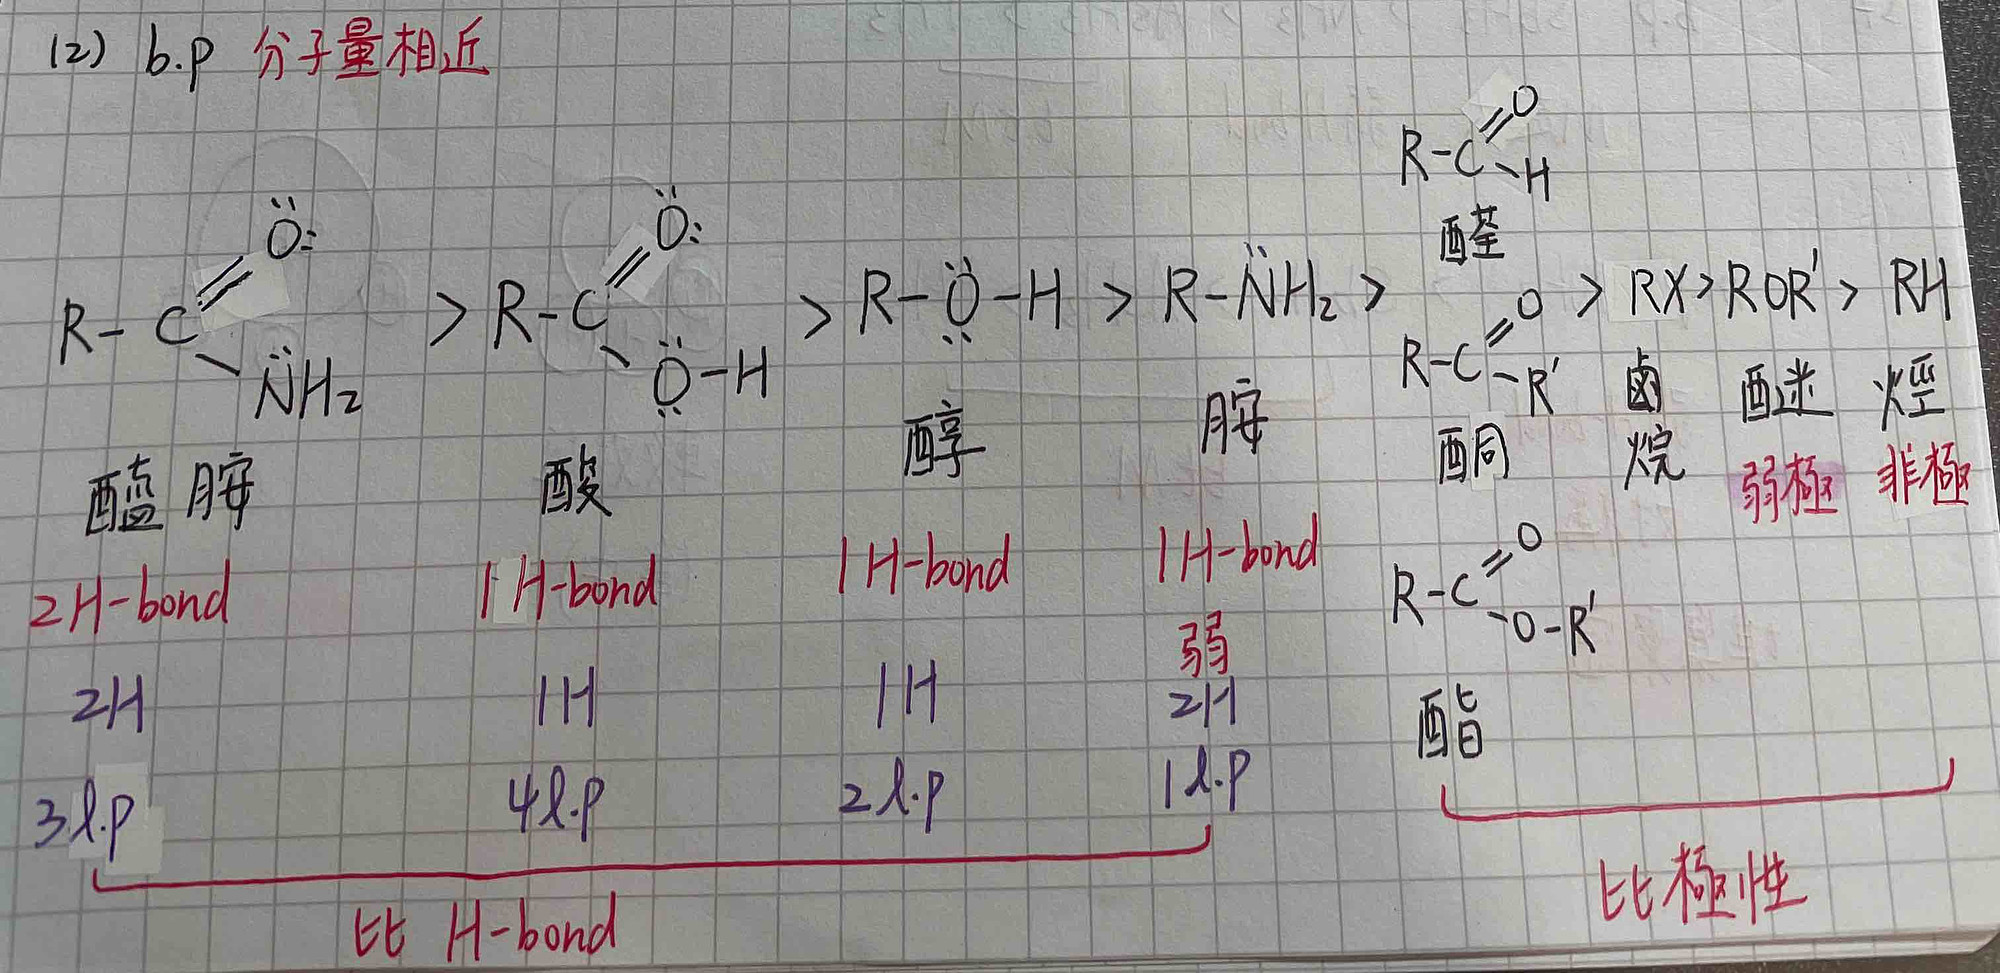 (2) b.p 分子量相近
R-C(=Ö:)-N̈H₂ > R-C(=Ö:)-Ö-H > R-Ö-H > R-N̈H₂ > R-C(=O)-H 醛 R-C(=O)-R' 酮 R-C(=O)-O-R' 酯 > RX > ROR' > RH
醯胺 酸 醇 胺 鹵烷 醚 烴
弱極 非極
2H-bond 1H-bond 1H-bond 1H-bond
弱
2H 1H 1H 2H
3l.p 4l.p 2l.p 1l.p
比 H-bond 比極性